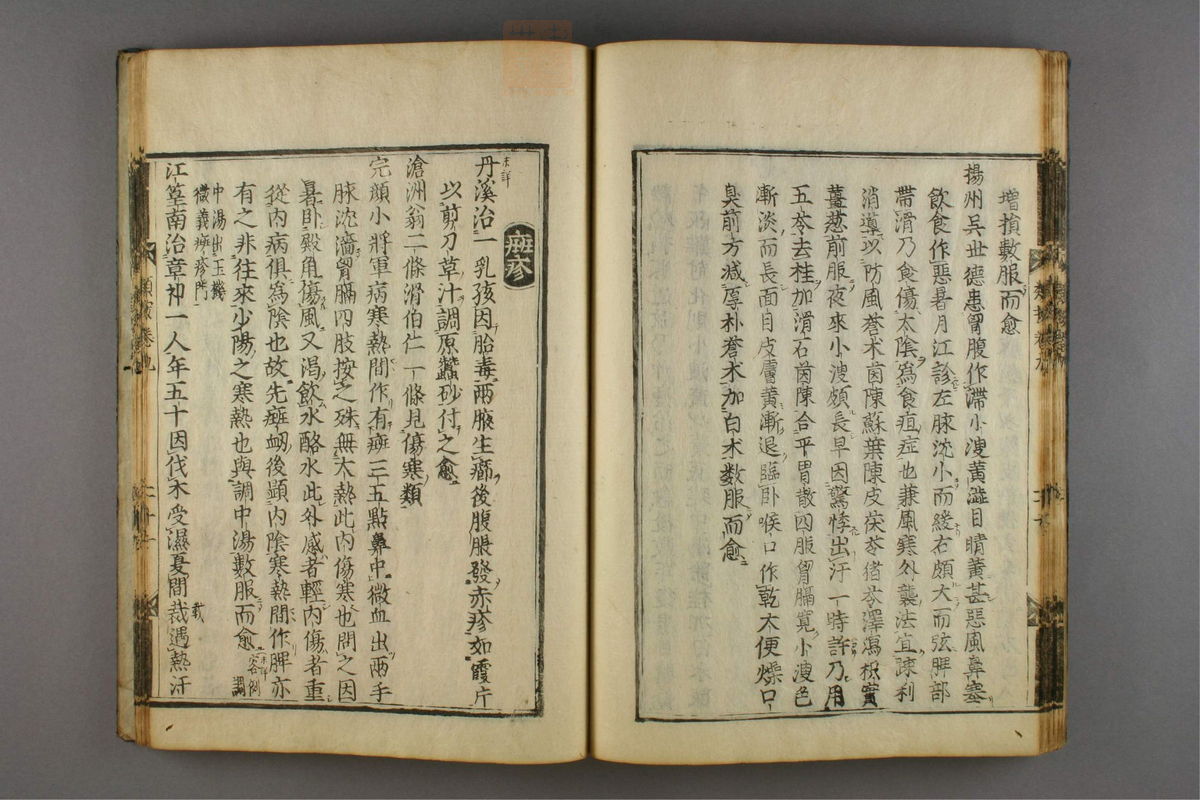 增損數服而愈
揚州吳世德患胃腹作滯小溲黃澁目睛黃甚惡風鼻塞
飲食作惡暑月江診左脉沈小而緩右頗大而弦脾部
帶滑乃食傷太陰為食疸症也兼風寒外襲法宜疎利
消導以防風蒼朮茵陳蘇葉陳皮茯苓猪苓澤瀉枳實
薑葱前服夜來小溲頗長早因驚悸出汗一時許乃用
五苓去桂加滑石茵陳合平胃散四服胃膈寬小溲色
漸淡而長面目皮膚黃漸退臨卧喉口作乾大便燥口
臭前方減厚朴蒼朮加白朮數服而愈
癍疹
丹溪治一乳孩因胎毒兩腋生癤後腹脹發赤疹如霞片
未詳
以剪刀草汁調原蠶砂付之愈
滄洲翁二條滑伯仁一條見傷寒類
完顏小將軍病寒熱間作有癍三五點鼻中微血出兩手
脉沈濇胃膈四肢按之殊無大熱此內傷寒也問之因
暑卧殿角傷風又渴飲水酪水此外感者輕內傷者重
從內病俱為陰也故先癍衂後顯內陰寒熱間作脾亦
有之非往來少陽之寒熱也與調中湯數服而愈
未詳
例調
中湯出玉機
微義癍疹門
江篁南治章祁一人年五十因伐木受濕夏間裁遇熱汗
裁
類案卷九